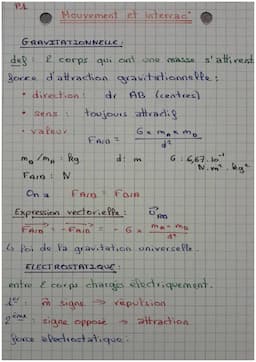 P.1
Mouvement et interac°
GRAVITATIONNELLE:
def: 2 corps qui ont une masse s'attirent.
force d'attraction gravitationnelle:
• direction: dr AB (centres)
• sens: toujours attractif
• valeur
FA/B = G × mA × mB / d²
mA / mB: kg d: m G: 6,67.10⁻¹¹
FA/B: N N.m².kg⁻²
On a FA/B = FB/A
Expression vectorielle: UAB
FA/B = - FB/A = - G × mA × mB / d²
↳ loi de la gravitation universelle.
ELECTROSTATIQUE:
entre 2 corps chargés électriquement.
1er: m̂ signe ⇒ répulsion
2ème: signe opposé ⇒ attraction
force électrostatique: